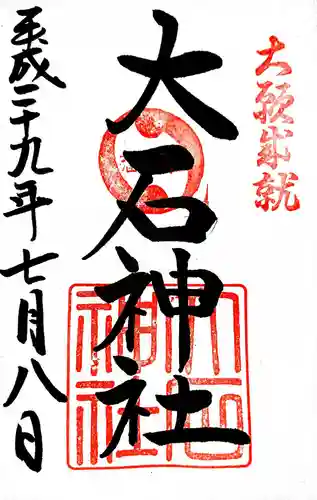 大願成就
大石神社
大石
神社
平成二十九年七月八日